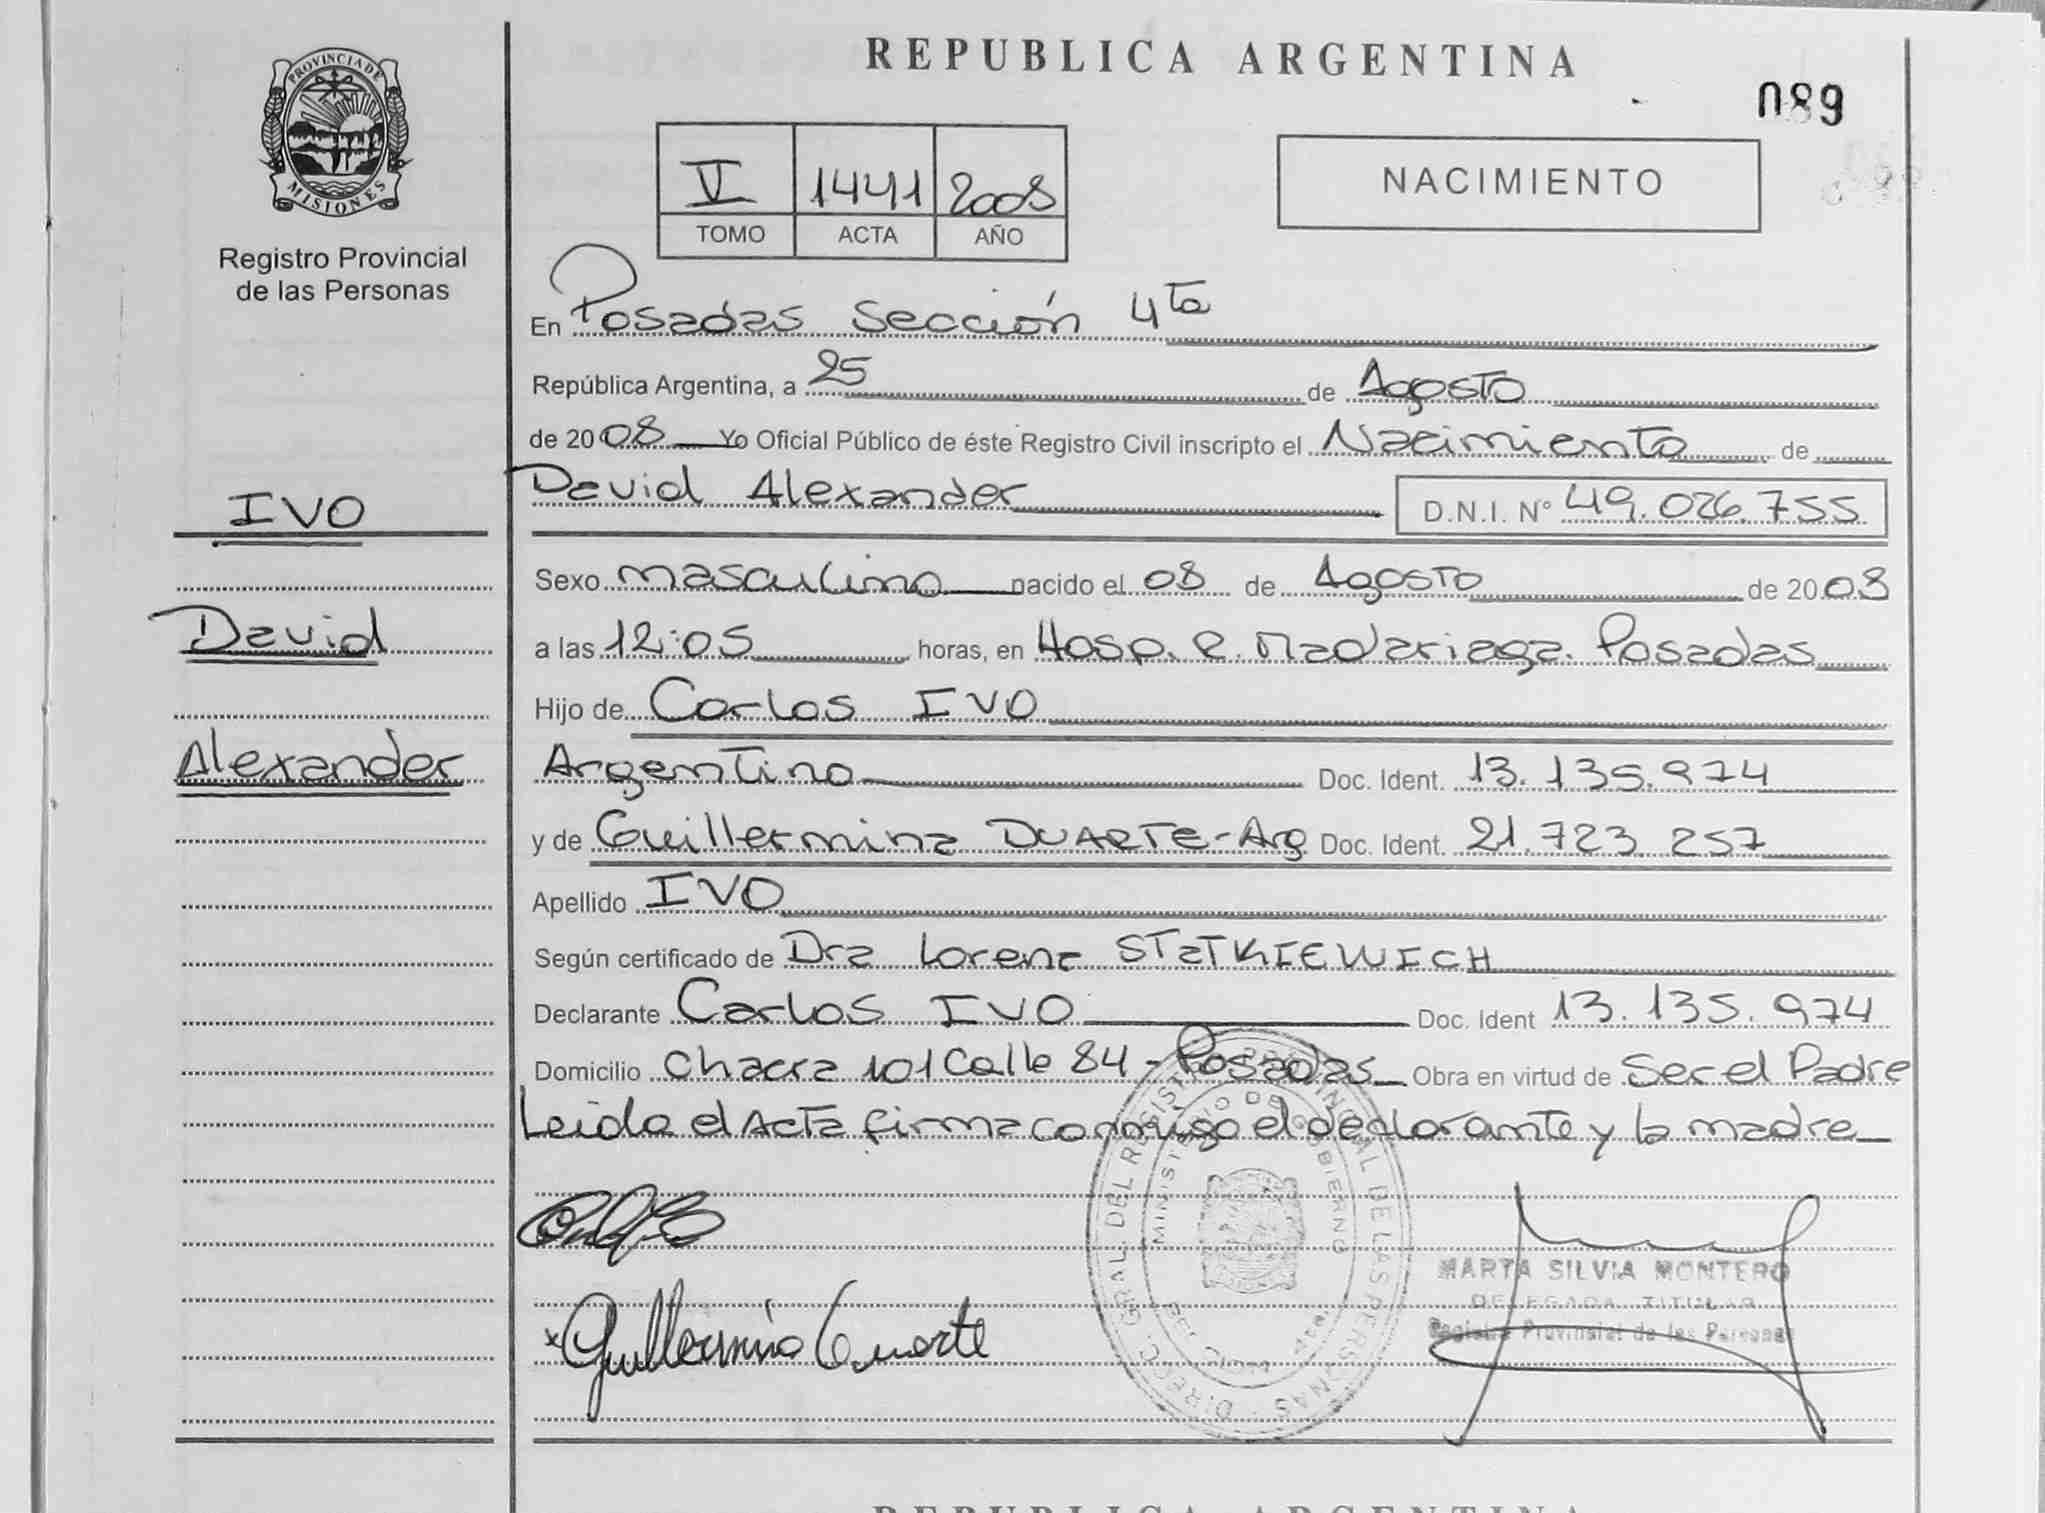 REPUBLICA ARGENTINA
089
PROVINCIA DE
MISIONES
Registro Provincial
de las Personas
V 1441 2008
TOMO ACTA AÑO
NACIMIENTO
En Posadas Sección 4ta
República Argentina, a 25 de Agosto
de 2008 Yo Oficial Público de éste Registro Civil inscripto el Nacimiento de
David Alexander D.N.I. N° 49.026.755
IVO
David
Alexander
Sexo masculino nacido el 08 de Agosto de 2008
a las 12:05 horas, en Hosp. R. Madariaga. Posadas
Hijo de Carlos IVO
Argentino Doc. Ident. 13.135.974
y de Guillermina DUARTE-Arg Doc. Ident. 21.723.257
Apellido IVO
Según certificado de Dra Lorena STATKIEWICH
Declarante Carlos IVO Doc. Ident 13.135.974
Domicilio Chacra 101 Calle 84 - Posadas Obra en virtud de Ser el Padre
Leida el Acta firma conmigo el declarante y la madre
DIRECC. GRAL. DEL REGISTRO PROVINCIAL DE LAS PERSONAS
MINISTERIO DE GOBIERNO
MARTA SILVIA MONTERO
DELEGADA TITULAR
Registro Provincial de las Personas
Guillermina Duarte
REPUBLICA ARGENTINA